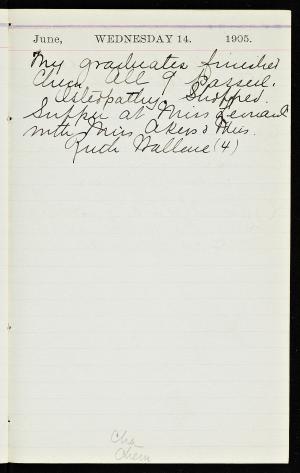 June, WEDNESDAY 14. 1905.
My graduates finished
Chem All 9 passed.
Osteopathy. Shopped.
Supper at Miss
with Miss Akers & Miss
Ruth Wallace (4)
Chem